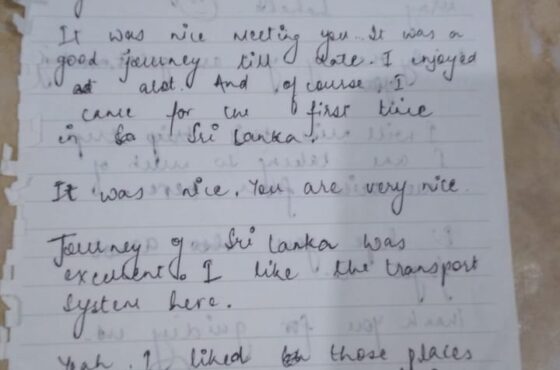 It was nice meeting you. It was a
good journey till date. I enjoyed
alot. And of course I
came for the first time
in Sri Lanka.
It was nice. You are very nice.
Journey of Sri Lanka was
excellent. I like the transport
system here.
Yeah. I liked those places